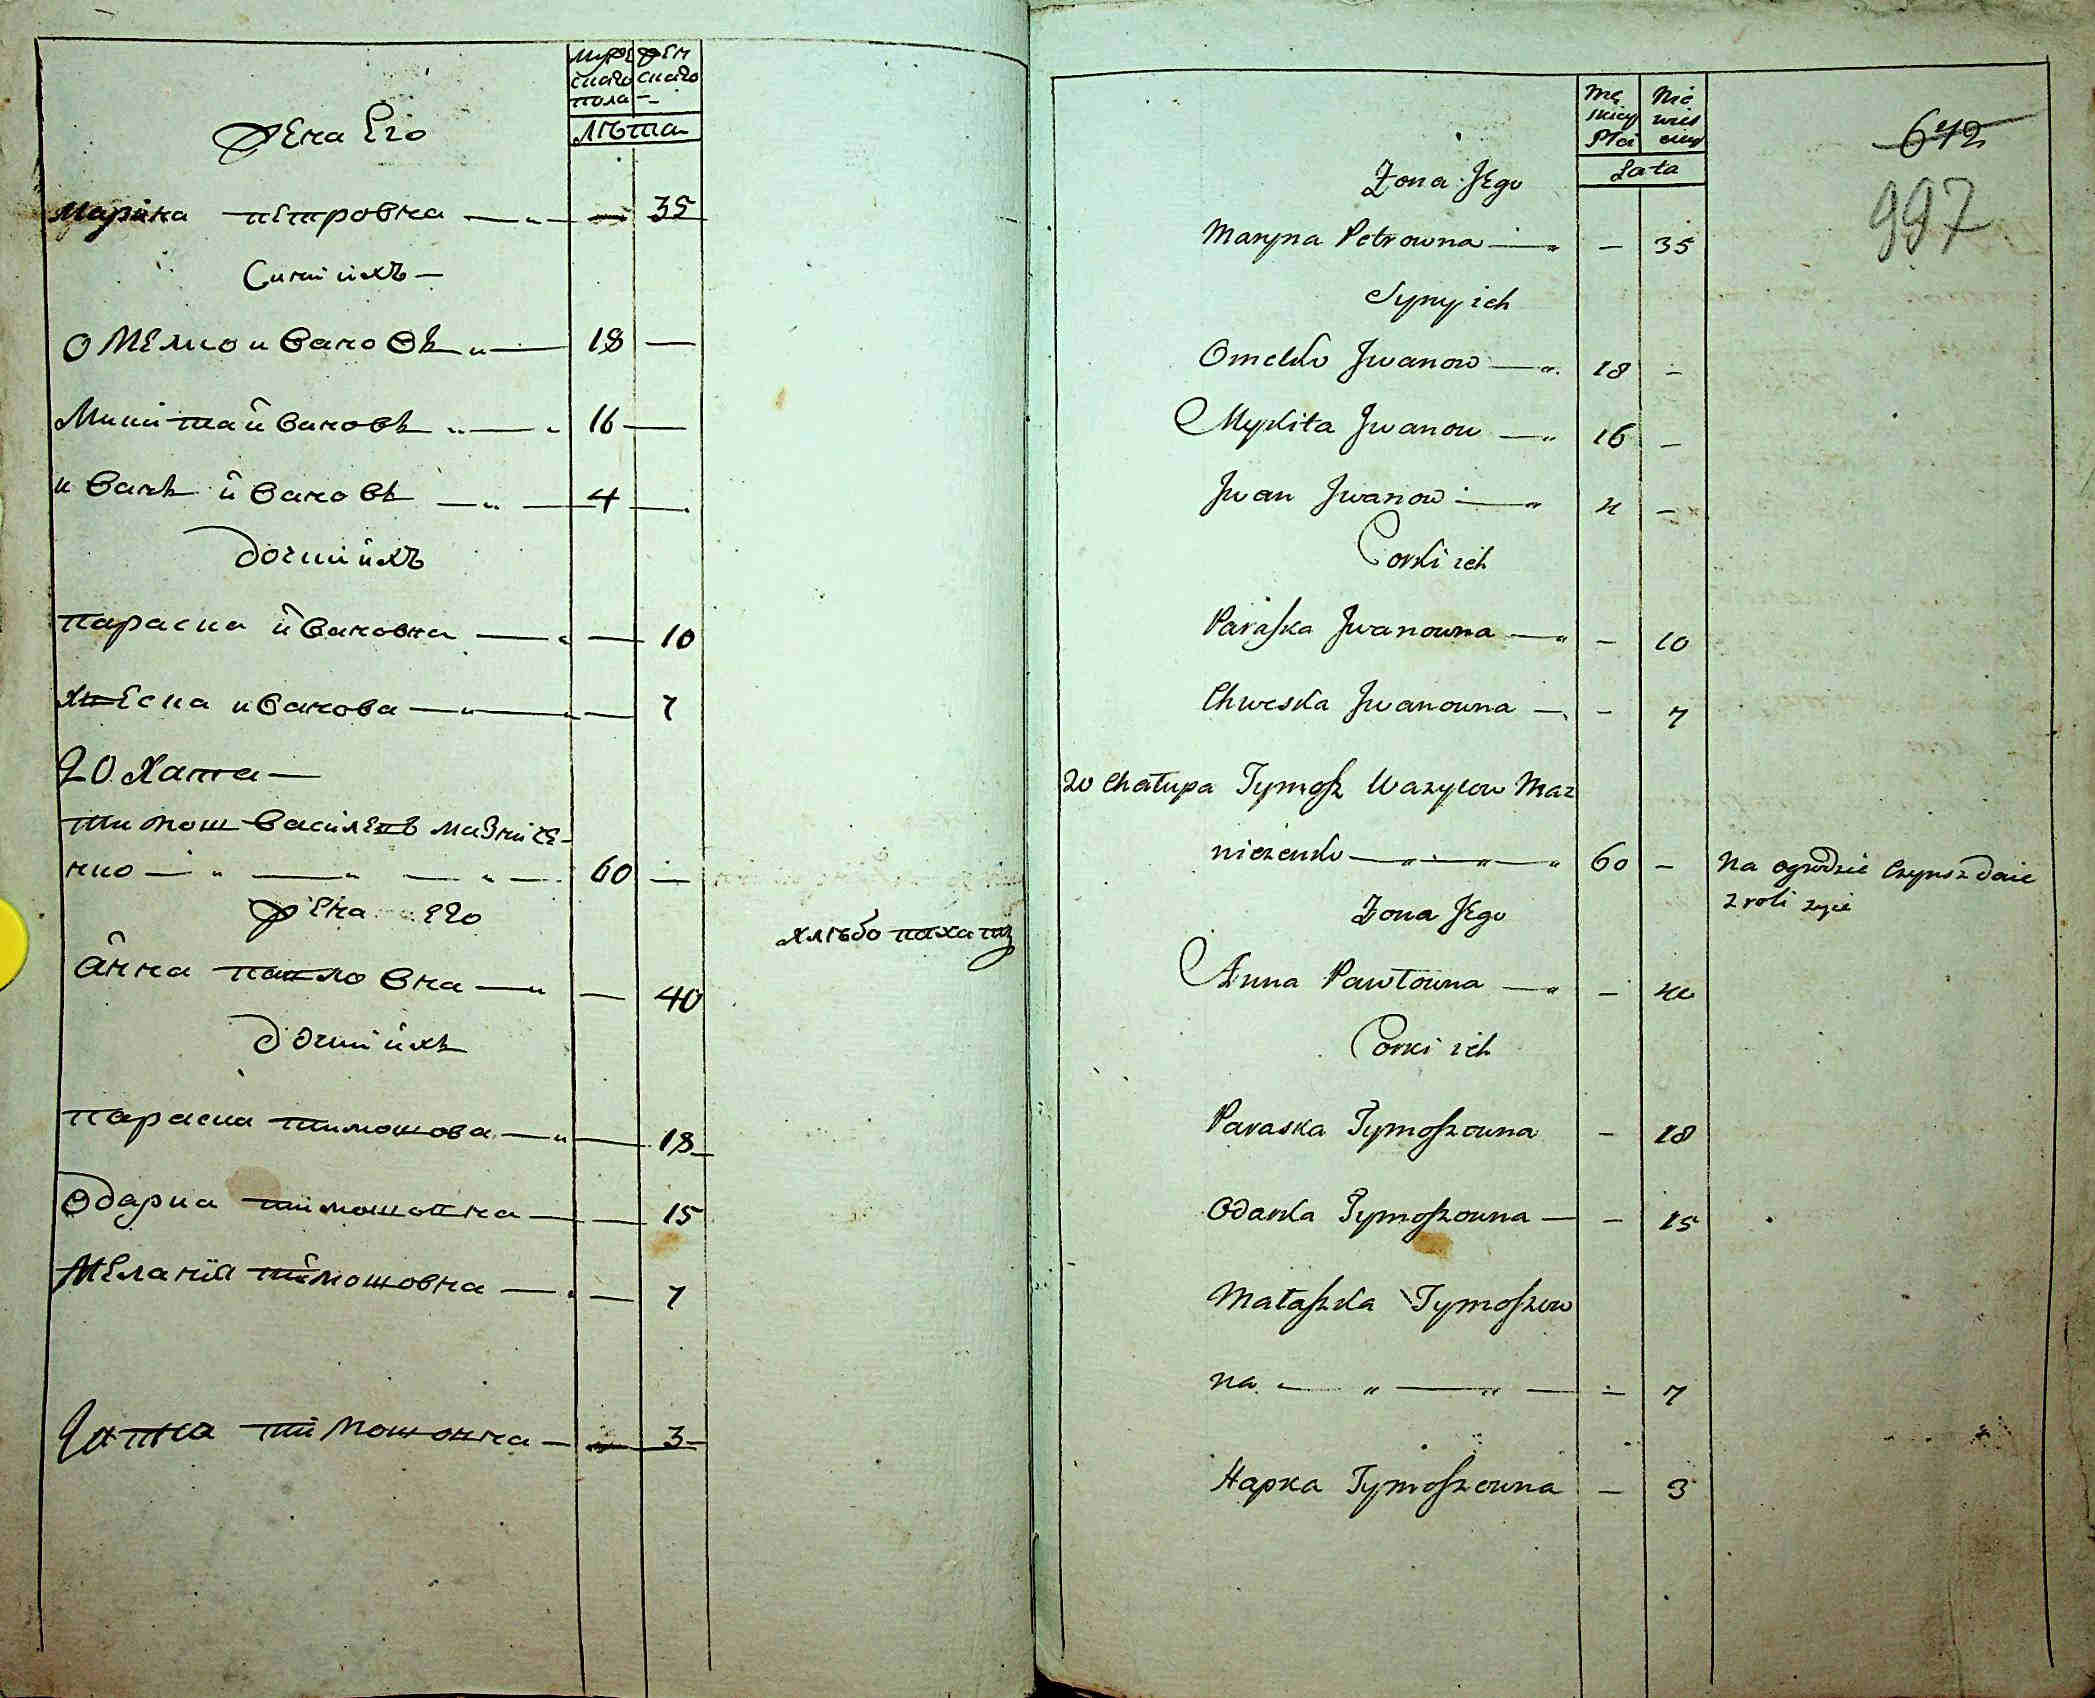 мужескаго пола женскаго
лѣта
жена Его
марина пєтровна — 35
Сини ихъ —
Омелко ивановъ 18 —
Микита ивановъ 16 —
иванъ ивановъ 4 —
дочки ихъ
параска ивановна — 10
хвеска иванова — 7
20 Хата —
тимош василевъ мазничє-
нко — 60 —
жена его
хлѣбо пахатц
анна павловна — 40
дочки ихъ
параска тимошова — 18
Одарка тимошовна — 15
Меланїа тимошовна — 7
гапка тимошовна — 3
Męskiey Płci Niewieściey
Lata
642
997
Żona Jego
Maryna Petrowna — 35
Synÿ ich
Omelko Jwanow — 18 —
Mykita Jwanow — 16 —
Jwan Jwanow — 4 —
Corki ich
Paraska Jwanowna — 10
Chweska Jwanowna — 7
20 Chałupa Tymosz Wazylow Maz
niczenko — 60 — Na ogrodzie Czynsz daie
z roli zyie
Żona Jego
Anna Pawłowna — 40
Corki ich
Paraska Tymoszowna — 18
Odarka Tymoszowna — 15
Małaszka Tymoszow
na — 7
Hapka Tymoszowna — 3